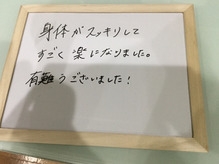 身体がスッキリして
すごく楽になりました。
有難うございました！